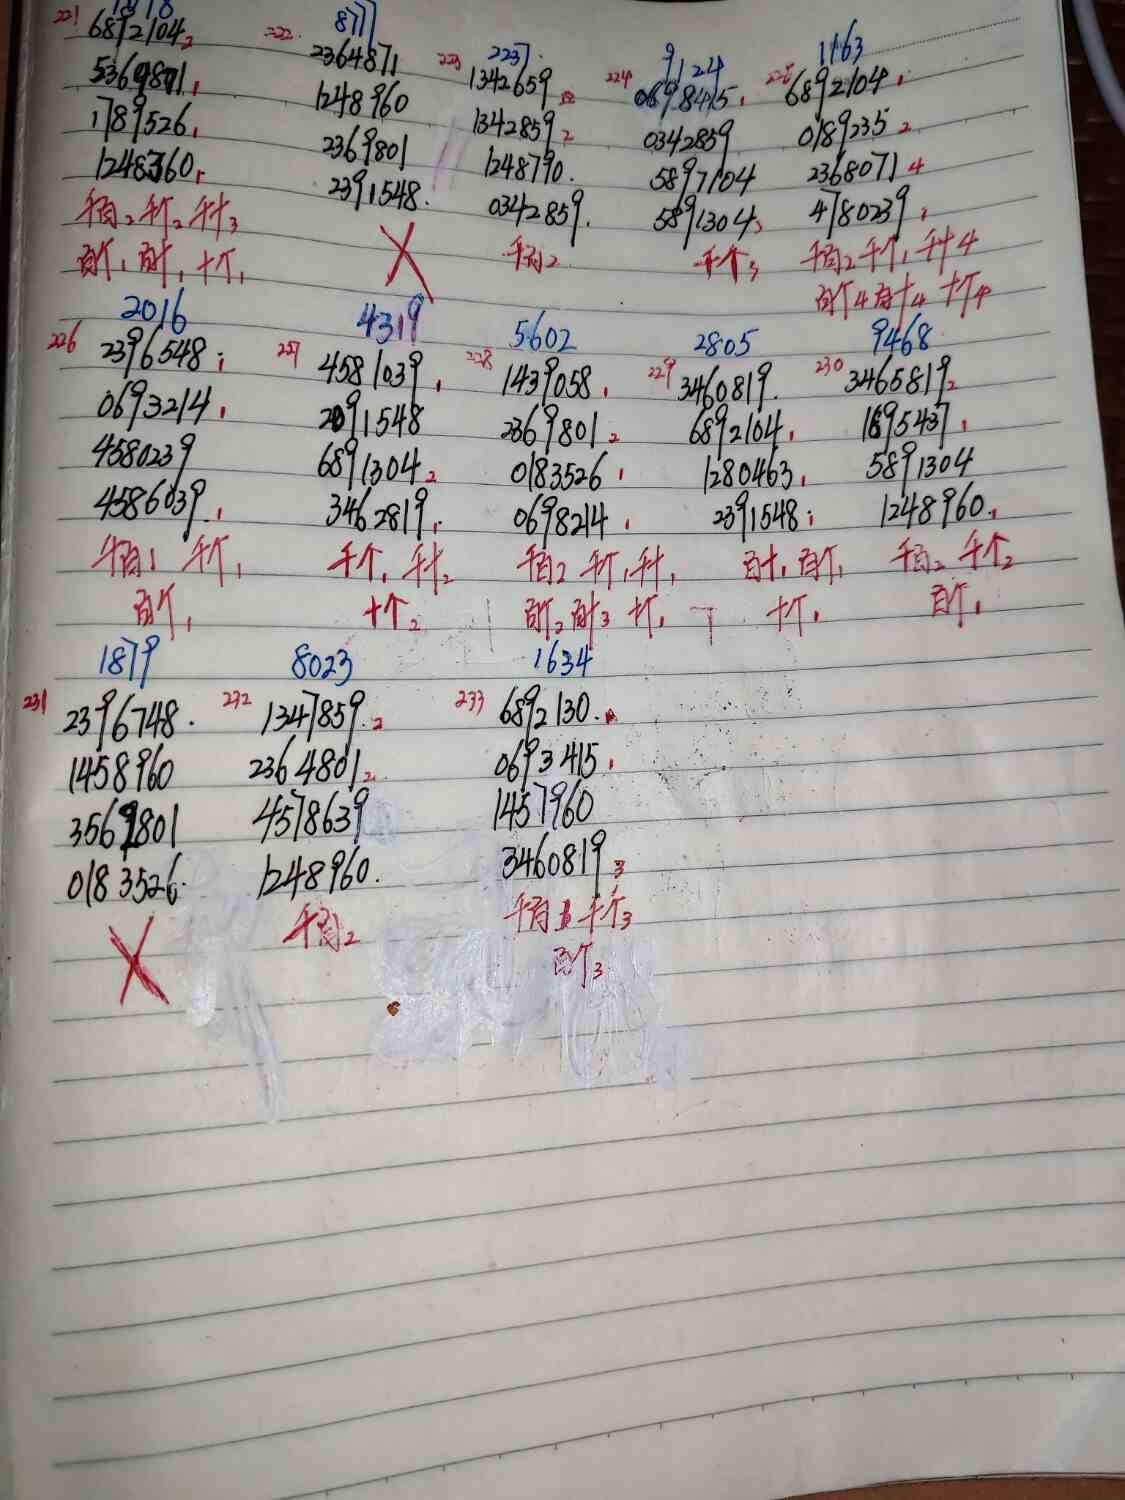 221 222. 8777 223 2237. 224 9124 225 1163
6892104 2 2364871 1342659 0698415 1 6892104 1
5369801 1 1248960 1342859 2 0342859 0189235 2
1789526 1 2369801 1248790. 5897104 2368071 4
1248360 1 2391548. 0342859. 5891304 3 4780239 1
千百2 千个2 千十3 X 千百2 千个3 千百2 千个1 千十4
百个1 百十1 十个1 百个4 百十4 十个4
226 2016 227 4319 228 5602 229 2805 230 9468
2396548 1 4581039 1 1439058 1 3460819. 3465819 2
0693214 1 2091548 2369801 2 6892104 1 1895437 1
4580239 6891304 2 0183526 1 1280463 1 5891304
4586039 1 3462819 1 0698214 1 2391548 1 1248960 1
千百1 千个1 千个1 千十2 千百2 千个1 千十1 百十1 百个1 千百2 千个2
百个1 十个2 百个2 百十3 十个1 十个1 百个1
231 1879 232 8023 233 1634
2396748. 1347859 2 6892130.
1458960 2364801 2 0693415 1
3569801 4578639 1457960
0183526. 1248960. 3460819 3
X 千百2 千百1 千个3
百个3